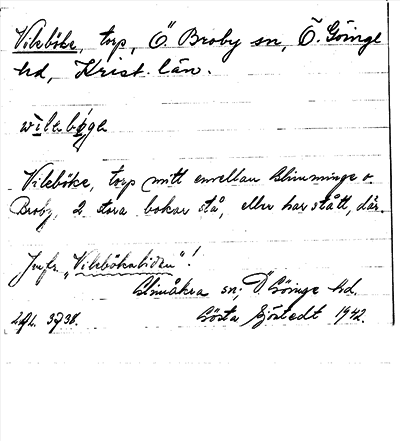 Vileböke, torp, Ö. Broby sn, Ö. Göinge
hd, Krist. län.
Vileböke, torp mitt emellan Glimminge o.
Broby. 2 stora bokar stå, eller har stått, där.
Jmfr. „Vilebökalidan"!
Glimåkra sn; Ö Göinge hd.
Gösta Sjöstedt 1942.